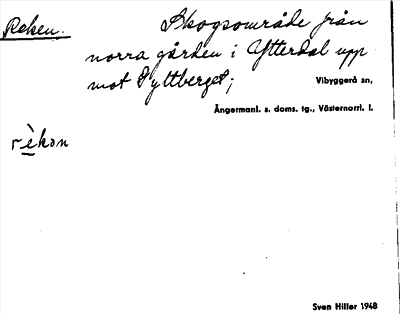 Reken. Skogsområde från
norra gården i Ytterdal upp
mot Pyttberget;
Vibyggerå sn,
Ångermanl. s. doms. tg., Västernorrl. l.
rèkən
Sven Hiller 1948